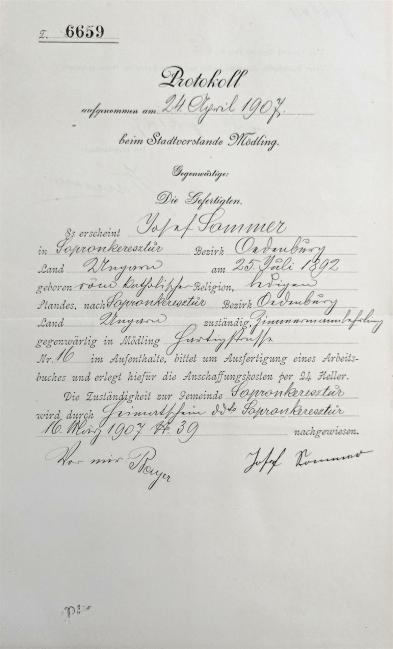 T. 6659
Protokoll
aufgenommen am 24 April 1907.
beim Stadtvorstande Mödling.
Gegenwärtige:
Die Gefertigten.
Es erscheint Josef Sommer
in Sopronkeresztúr Bezirk Oedenburg
Land Ungarn am 25. Juli 1892
geboren röm katholischer Religion, ledigen
Standes, nach Sopronkeresztúr Bezirk Oedenburg
Land Ungarn zuständig, Zimmermannlehrling
gegenwärtig in Mödling Hartigstrasse
Nr. 16 im Aufenthalte, bittet um Ausfertigung eines Arbeits-
buches und erlegt hiefür die Anschaffungskosten per 24 Heller.
Die Zuständigkeit zur Gemeinde Sopronkeresztúr
wird durch Heimatschein ddto Sopronkeresztúr
16. März 1907 № 39 nachgewiesen.
Vor mir Josef Sommer